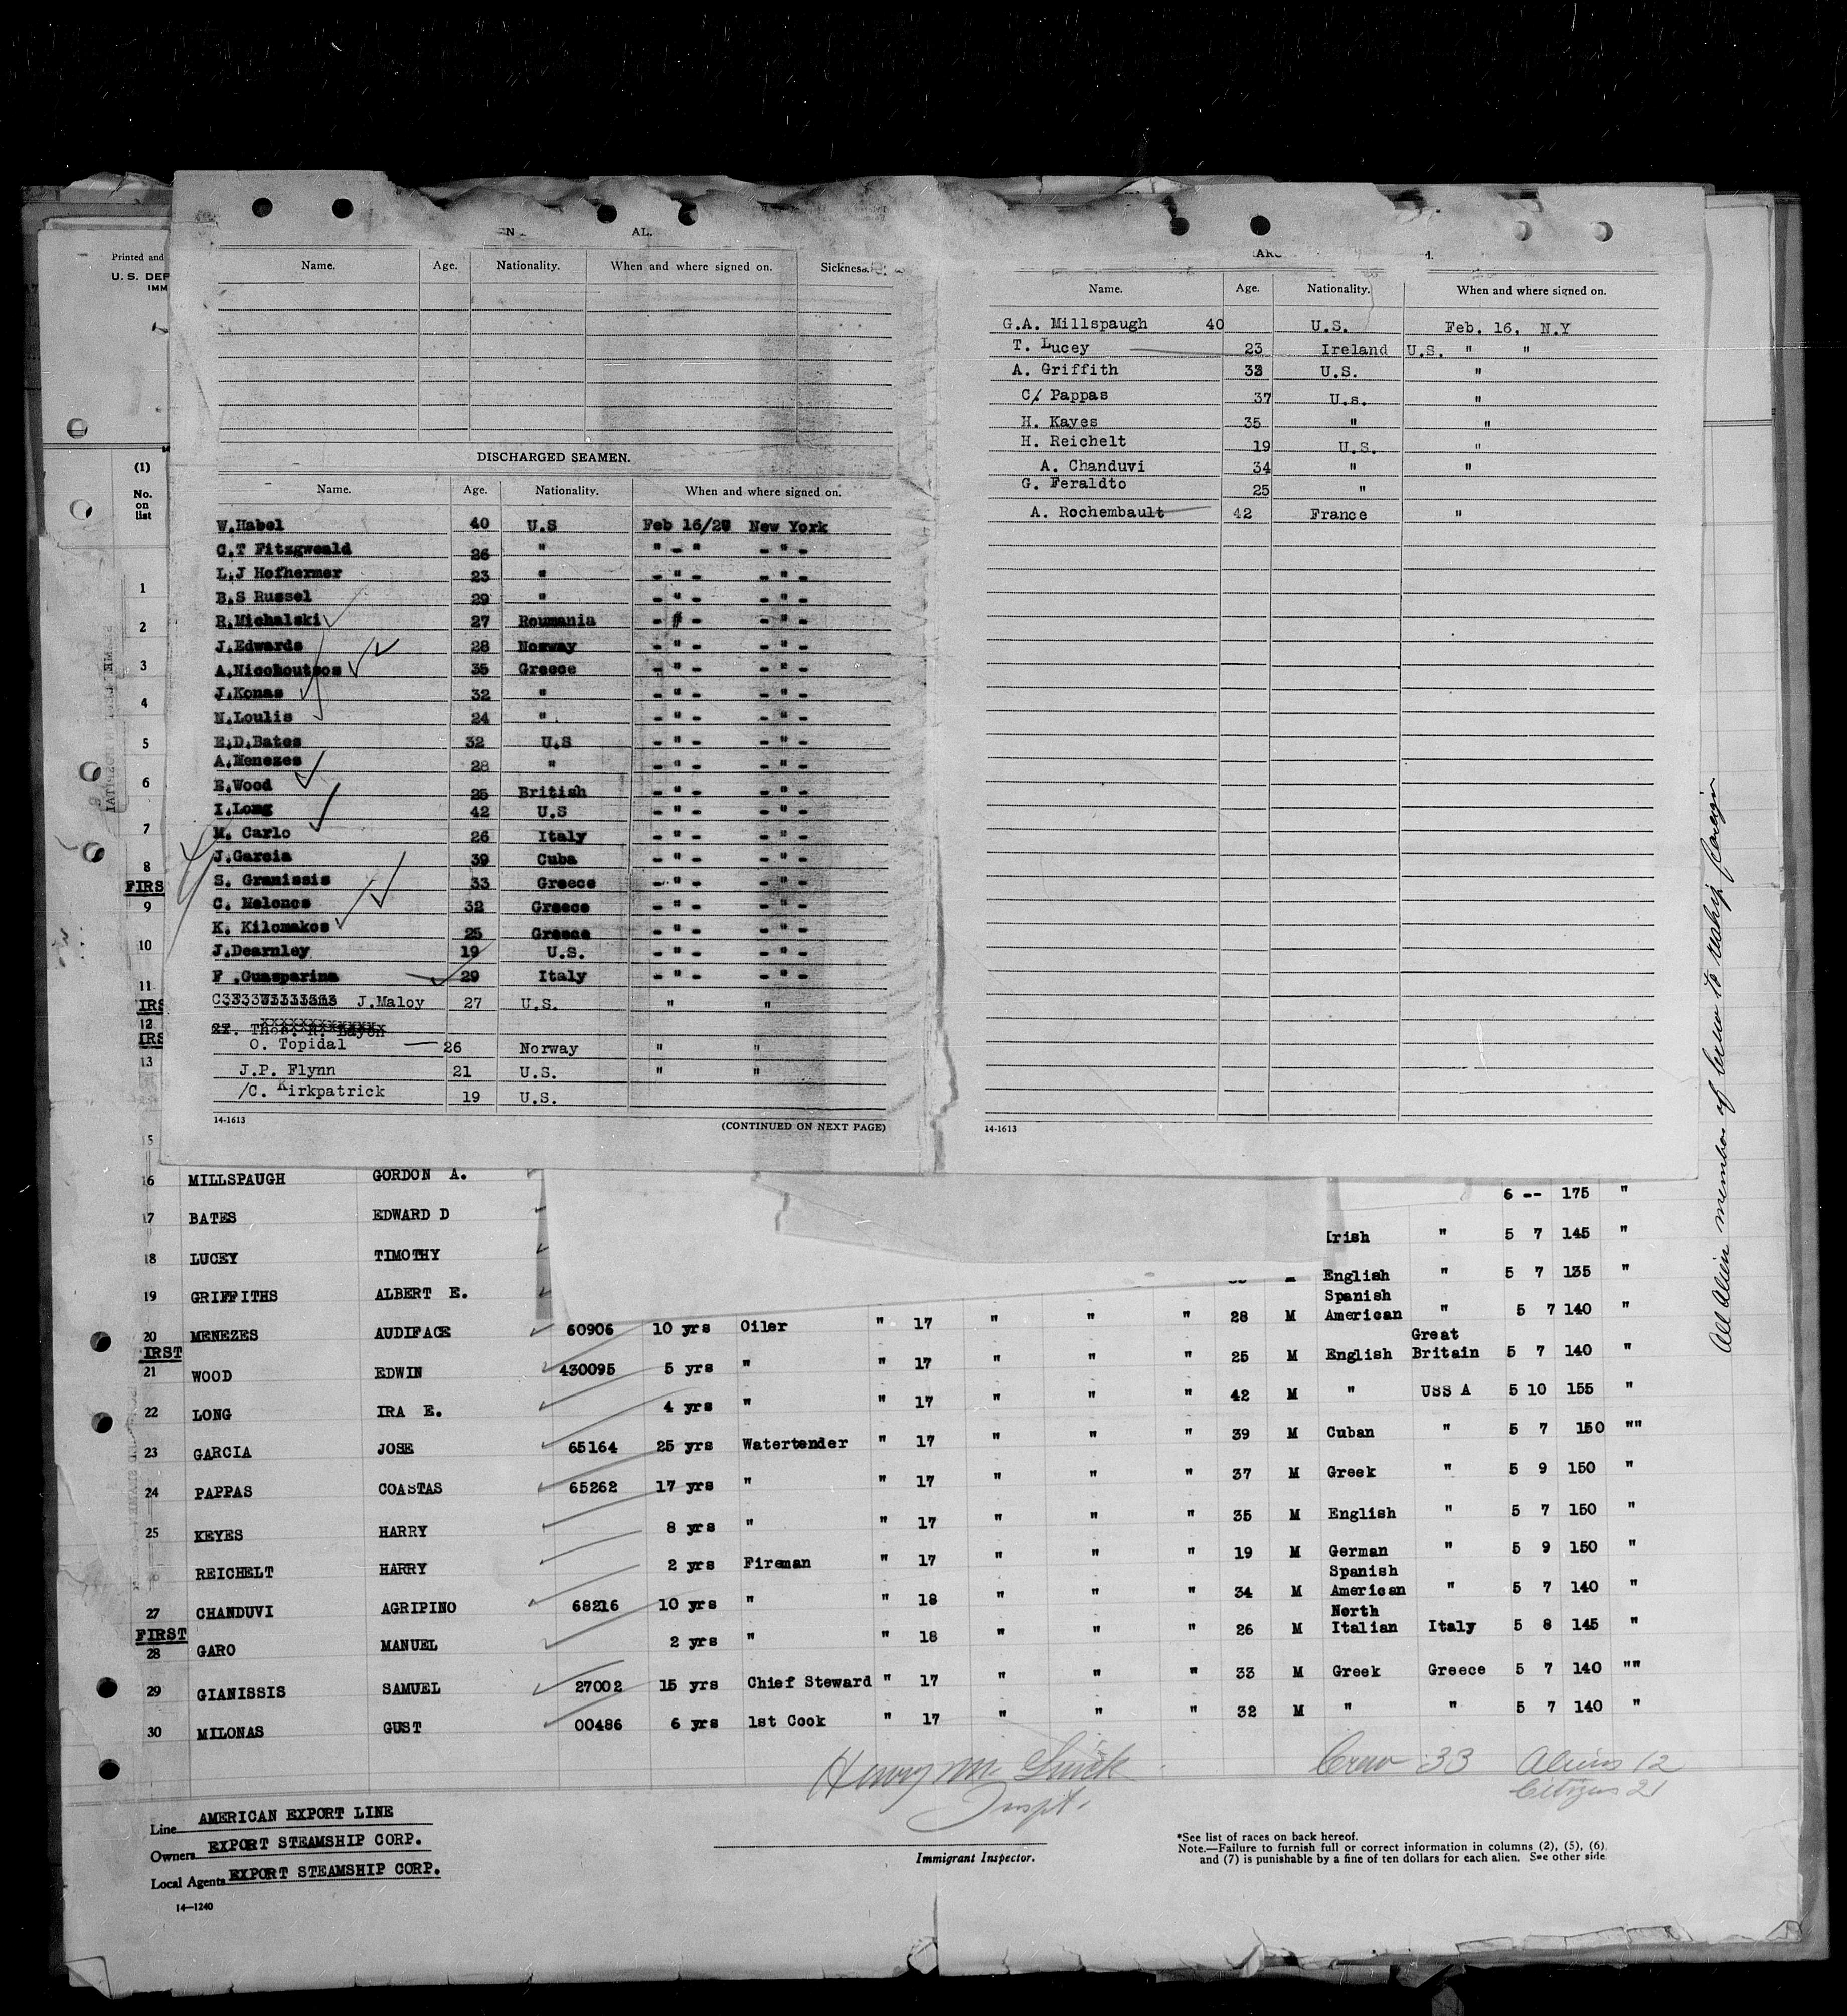 Printed and
U. S. DEP
IMM
(1)
No.
on
list
1
2
3
4
5
6
7
8
FIRS
9
10
11
IRS
12
IRS
13
15
EN AL.
Name. Age. Nationality. When and where signed on. Sickness.
DISCHARGED SEAMEN.
Name. Age. Nationality. When and where signed on.
W.Habel 40 U.S Feb 16/28 New York
C.T Fitzgweald 26 " " - " - " -
L.J Hofhermer 23 " - " - - " -
B.S Russel 29 " - " - - " -
R.Michalski 27 Roumania - " - - " -
J.Edwards 28 Norway - " - - " -
A.Nicohoutsos 35 Greece - " - - " -
J.Konas 32 " - " - - " -
N.Loulis 24 " - " - - " -
E.D.Bates 32 U.S - " - - " -
A.Menezes 28 " - " - - " -
E.Wood 25 British - " - - " -
I.Long 42 U.S - " - - " -
M. Carlo 26 Italy - " - - " -
J.Garcia 39 Cuba - " - - " -
S. Granissis 33 Greece - " - - " -
C. Melonos 32 Greece - " - - " -
K. Kilomakos 25 Greece - " - - " -
J.Dearnley 19 U.S. - " - - " -
F .Guasparina 29 Italy - " - - " -
J.Maloy 27 U.S. " "
O. Topidal 26 Norway " "
J.P. Flynn 21 U.S. " "
/C. Kirkpatrick 19 U.S.
14-1613 (CONTINUED ON NEXT PAGE)
Name. Age. Nationality. When and where signed on.
G.A. Millspaugh 40 U.S. Feb. 16, N.Y
T. Lucey 23 Ireland U.S. " "
A. Griffith 33 U.S. "
C/. Pappas 37 U.s. "
H. Kayes 35 " "
H. Reichelt 19 U.S. "
A. Chanduvi 34 " "
G. Feraldto 25 "
A. Rochembault 42 France "
14-1613
All Alien members of crew to reship foreign
16 MILLSPAUGH GORDON A. 6 -- 175 "
17 BATES EDWARD D Irish " 5 7 145 "
18 LUCEY TIMOTHY English " 5 7 135 "
19 GRIFFITHS ALBERT E. Spanish American " 5 7 140 "
20 MENEZES AUDIFACE 60906 10 yrs Oiler " 17 " " " 28 M
IRST
21 WOOD EDWIN 430095 5 yrs " " 17 " " " 25 M English Great Britain 5 7 140 "
22 LONG IRA E. 4 yrs " " 17 " " " 42 M " USS A 5 10 155 "
23 GARCIA JOSE 65164 25 yrs Watertender " 17 " " " 39 M Cuban " 5 7 150 ""
24 PAPPAS COASTAS 65262 17 yrs " " 17 " " " 37 M Greek " 5 9 150 "
25 KEYES HARRY 8 yrs " " 17 " " " 35 M English " 5 7 150 "
REICHELT HARRY 2 yrs Fireman " 17 " " " 19 M German " 5 9 150 "
27 CHANDUVI AGRIPINO 68216 10 yrs " " 18 " " " 34 M Spanish American " 5 7 140 "
FIRST
28 GARO MANUEL 2 yrs " " 18 " " " 26 M North Italian Italy 5 8 145 "
29 GIANISSIS SAMUEL 27002 15 yrs Chief Steward " 17 " " " 33 M Greek Greece 5 7 140 ""
30 MILONAS GUST 00486 6 yrs 1st Cook " 17 " " " 32 M " " 5 7 140 "
Crew 33 Aliens 12
Citizens 21
Inspt.
Line AMERICAN EXPORT LINE
Owners EXPORT STEAMSHIP CORP.
Local Agents EXPORT STEAMSHIP CORP.
14—1240
Immigrant Inspector.
*See list of races on back hereof.
Note.—Failure to furnish full or correct information in columns (2), (5), (6)
and (7) is punishable by a fine of ten dollars for each alien. See other side